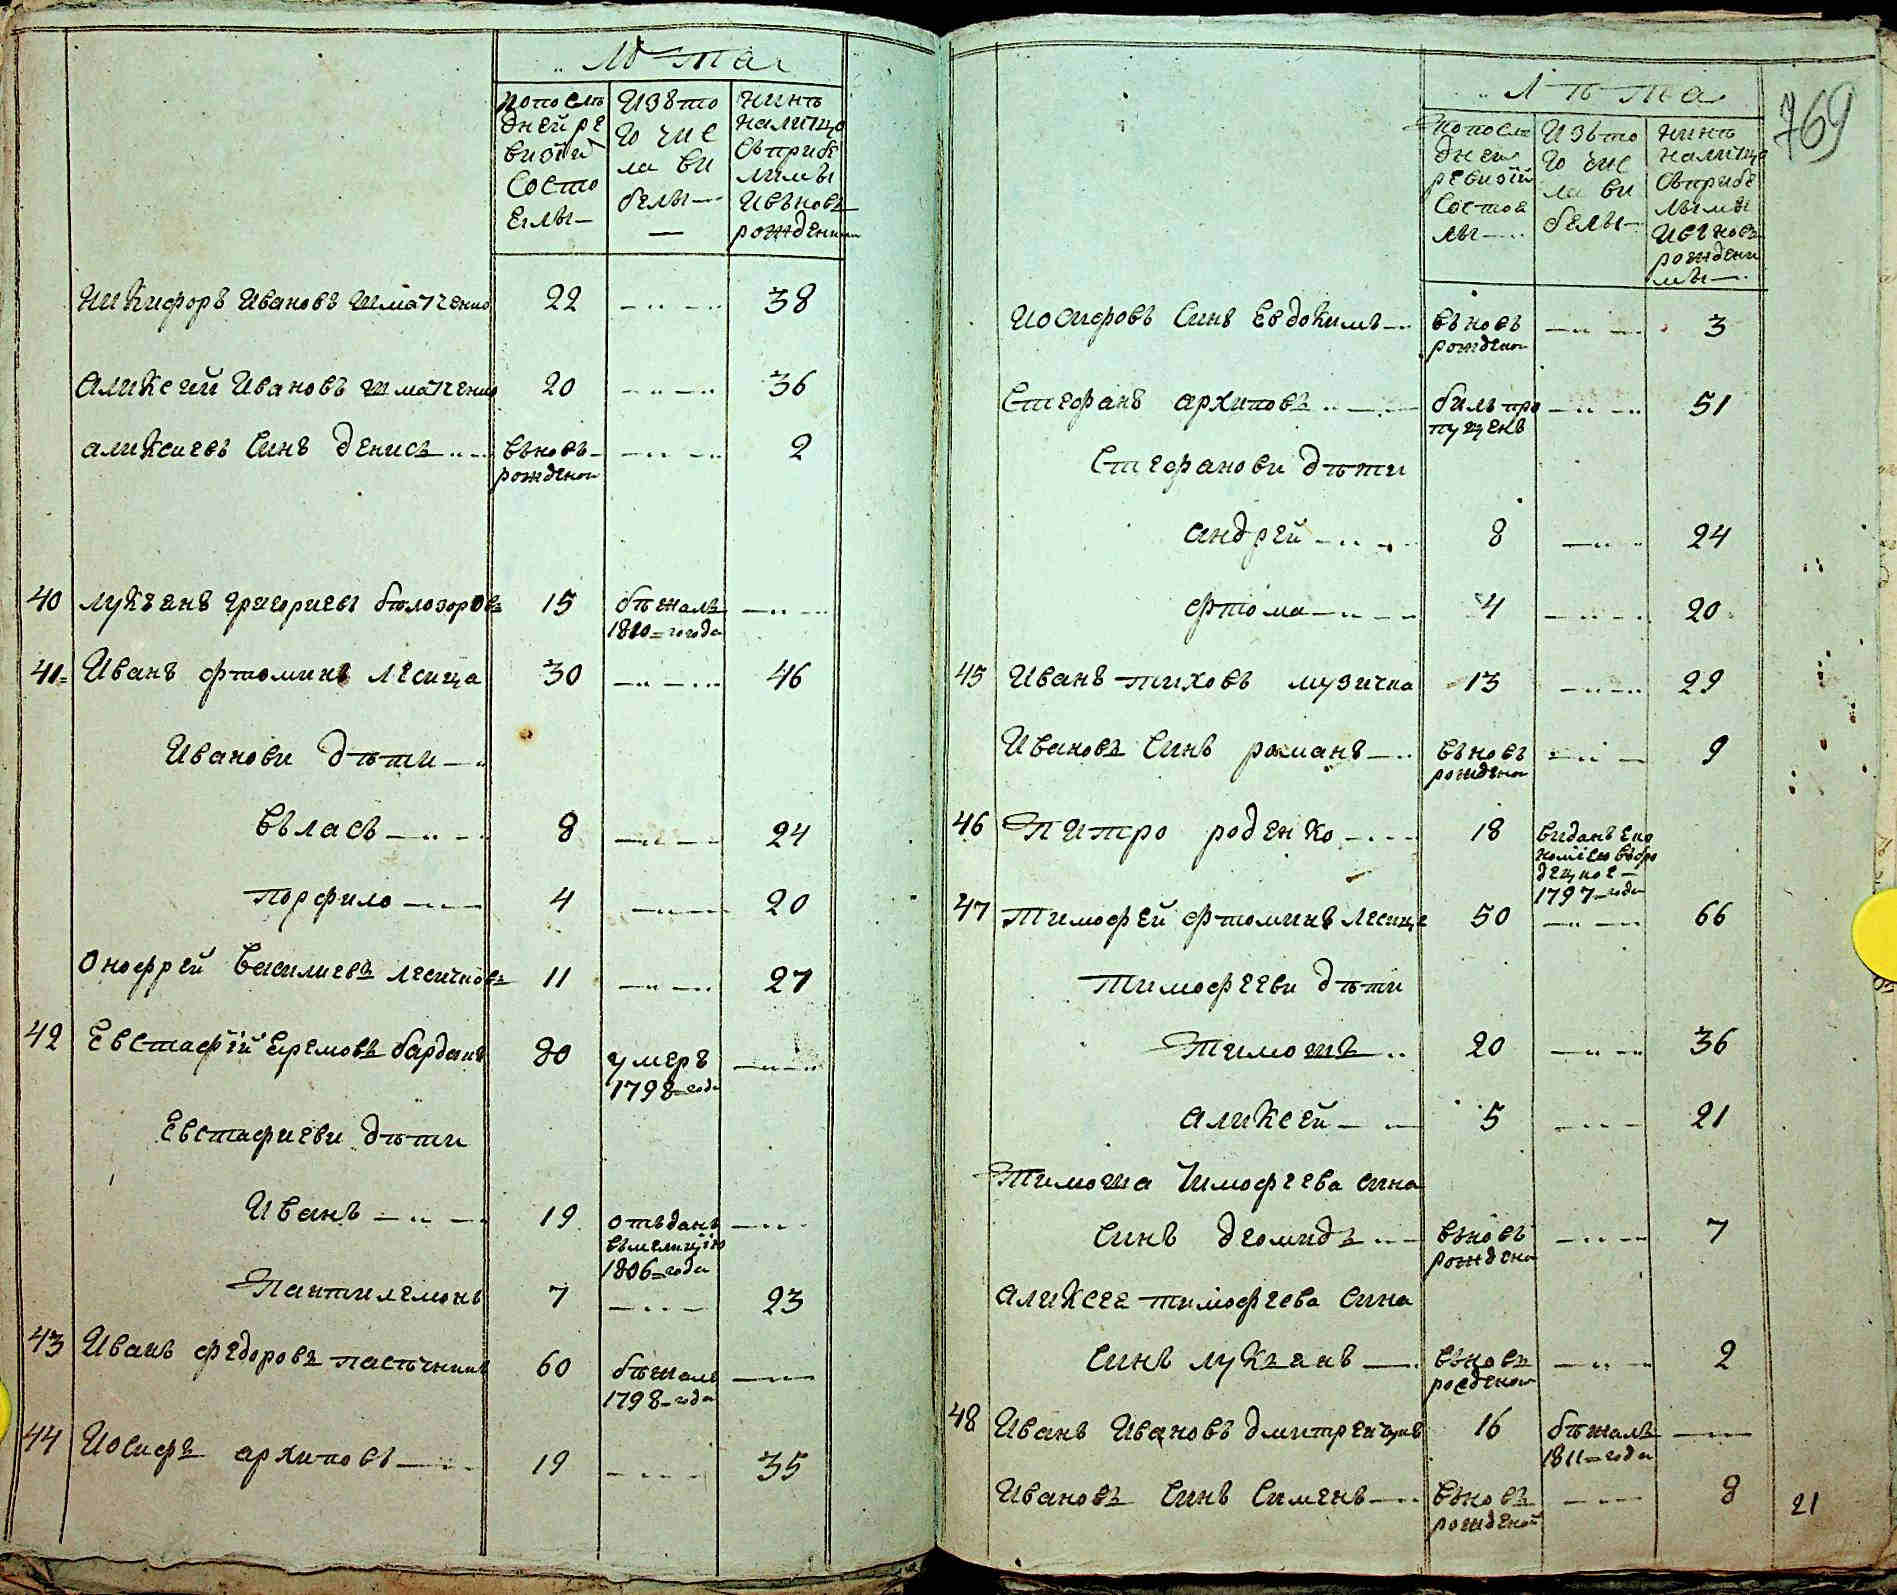 Лѣта
попослѣ
дней ре
визіи
состо
ялы—
Изъто
го чис
ла ви
белы—
нинѣ
налицо
съприбе
лимы
ивъновъ
рожденими
Никифоръ Ивановъ Шматченко 22 38
Аликсей Ивановъ Шматченко 20 36
Аликсиевъ Синъ Денисъ въновь 2
рожденои
40 Лукъянъ Григориевъ бѣлозоровъ 15 бѣжалъ
1810=го года
41= Иванъ Фтоминъ Лесица 30 46
Иванови дѣти
Вьласъ 8 24
Порфило 4 20
Онофрей Василиевъ Лесичковъ 11 27
42 Евстафій Ефемовъ барданъ 80 умеръ
1798=года
Евстафиеви дѣти
Иванъ 19 отъданъ
въмелицію
1806=года
Пантилемонъ 7 23
43 Иванъ Федоровъ пасѣчникъ 60 бѣжалъ
1798=года
44 Иосифъ архиповъ 19 35
769
Лѣта
попосле
дней
ревизій
состоя
лы—
Изъто
го чис
ла ви
белы—
нинѣ
налицо
съприбе
лымы
ивъновь
рождени
мы—
Иосифовъ Синъ Евдокимъ въновь 3
рожденои
Стефанъ архиповъ билъ про 51
пущенъ
Стефанови дѣти
андрей 8 24
фтома 4 20
45 Иванъ тиховъ музичка 13 29
Ивановъ Синъ романъ въновь 9
рожденои
46 Питро роденко 18 виданъ Еко
номіею въбро
децкое—
1797=года
47 Тимофей фтоминъ Лесица 50 66
Тимофееви дѣти
Тимошъ 20 36
Аликсей 5 21
Тимоша Тимофеева сина
Синъ Деомидъ въновь 7
рождено
Аликсее тимофеева сина
Синъ лукъянъ въновъ 2
рожденои
48 Иванъ Ивановъ дмитренчукъ 16 бѣжалъ
1811=года
Ивановъ Синъ Сименъ въновъ 8
рожденой
21